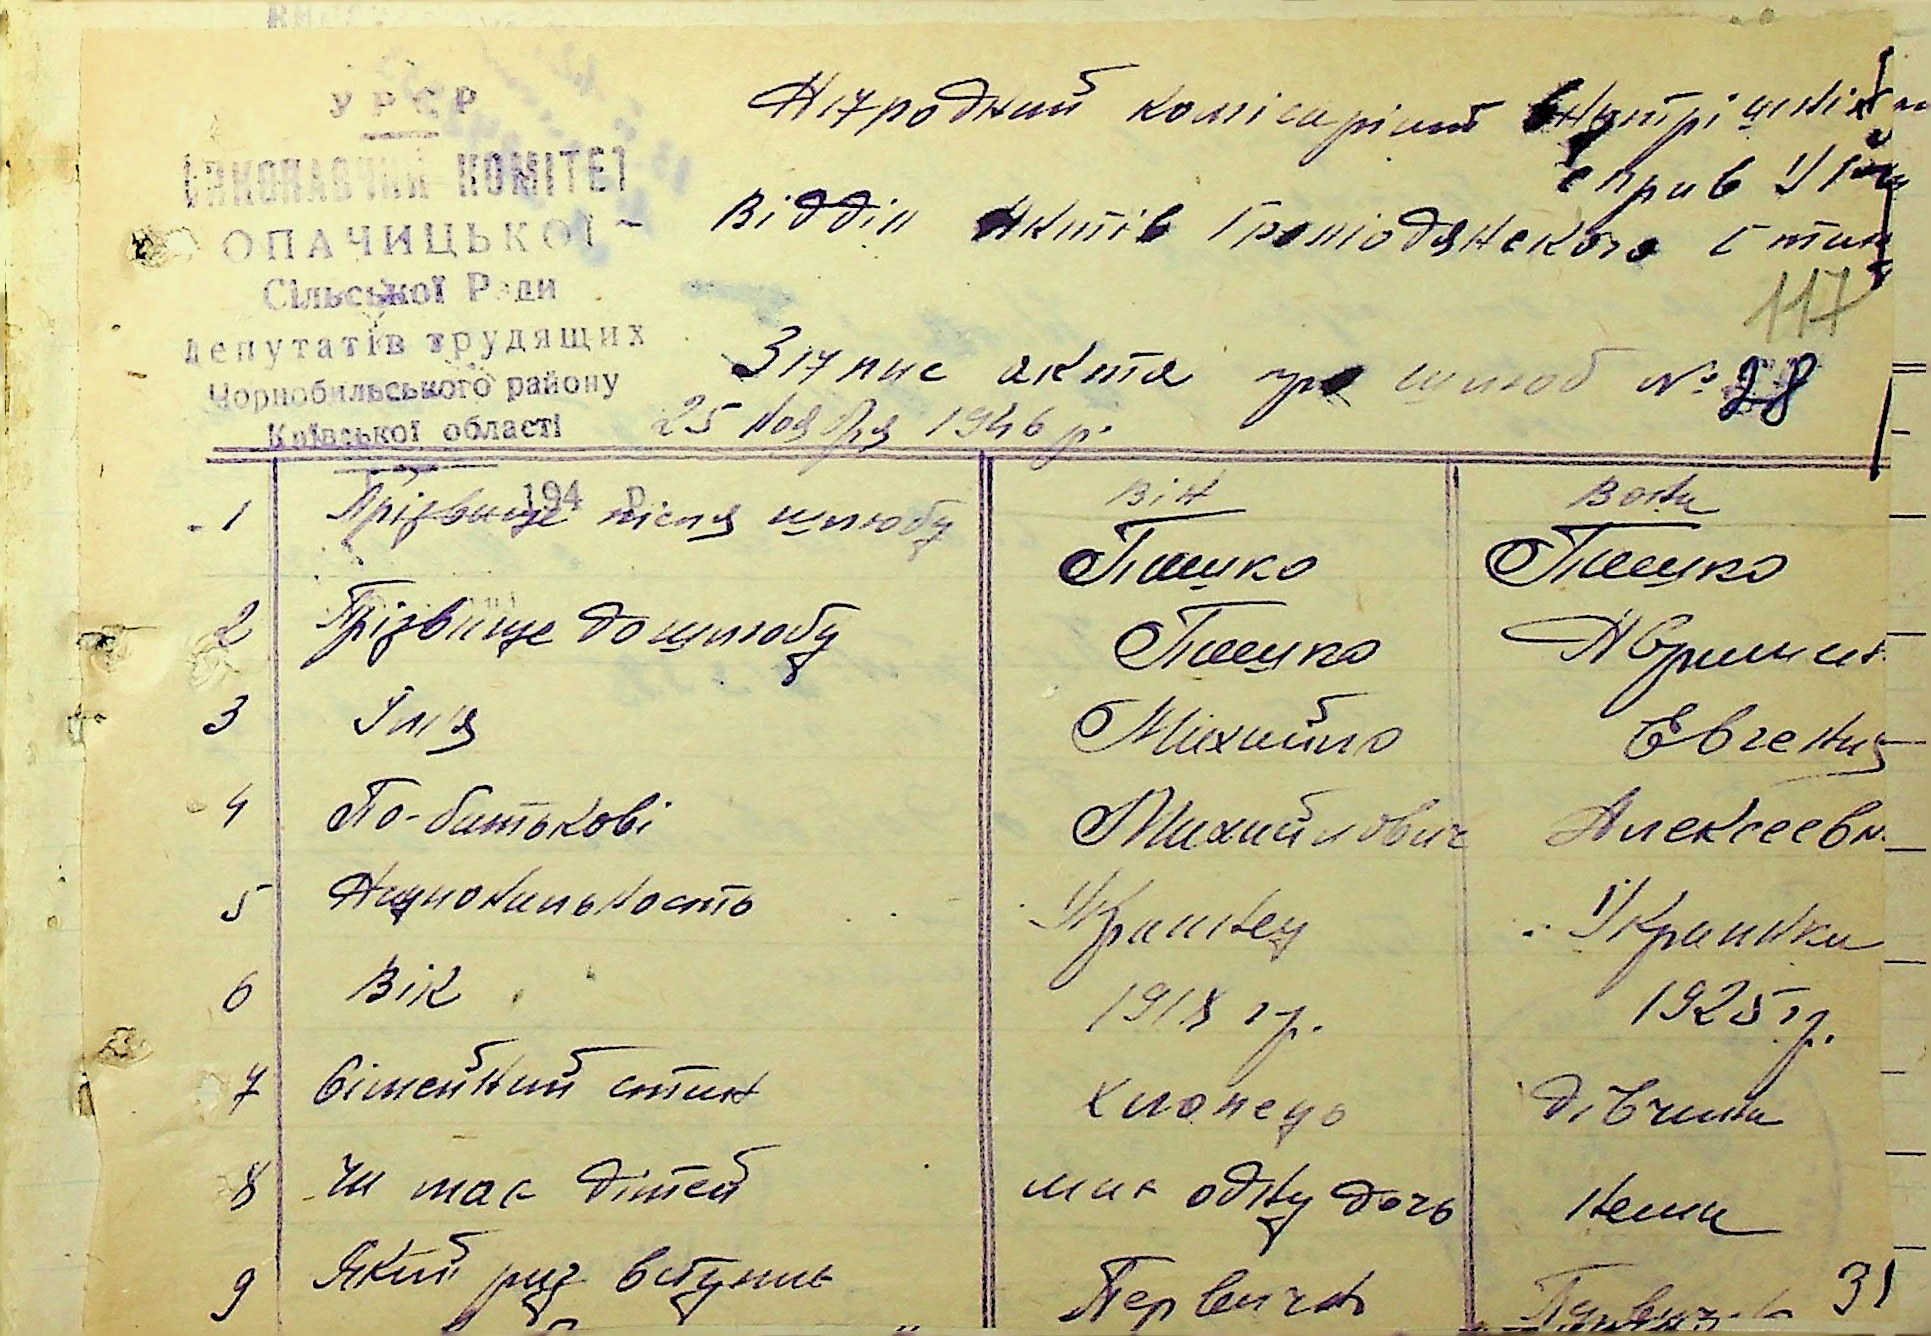 УРСР
ВИКОНАВЧИЙ КОМІТЕТ
ОПАЧИЦЬКОЇ
Сільської Ради
депутатів трудящих
Чорнобильського району
Київської області
194 р.
Народний комісаріат внутрішніх
справ
Відділ Актів Громодянского Стан
117
Запис акта про шлюб № 28
25 ноября 1946 р.
Він Вона
1 Прізвище після шлюбу Пашко Пашко
2 Прізвище до шлюбу Пашко
3 Ім'я Михайло Евгения
4 По-батькові Михайлович Алексеевн
5 Национальность Украинец Украинка
6 Вік 1918 гр. 1925 гр.
7 Сімейний стан хлопець дівчина
8 Чи має дітей має одну дочь нема
9 Який раз вступає Первична
31